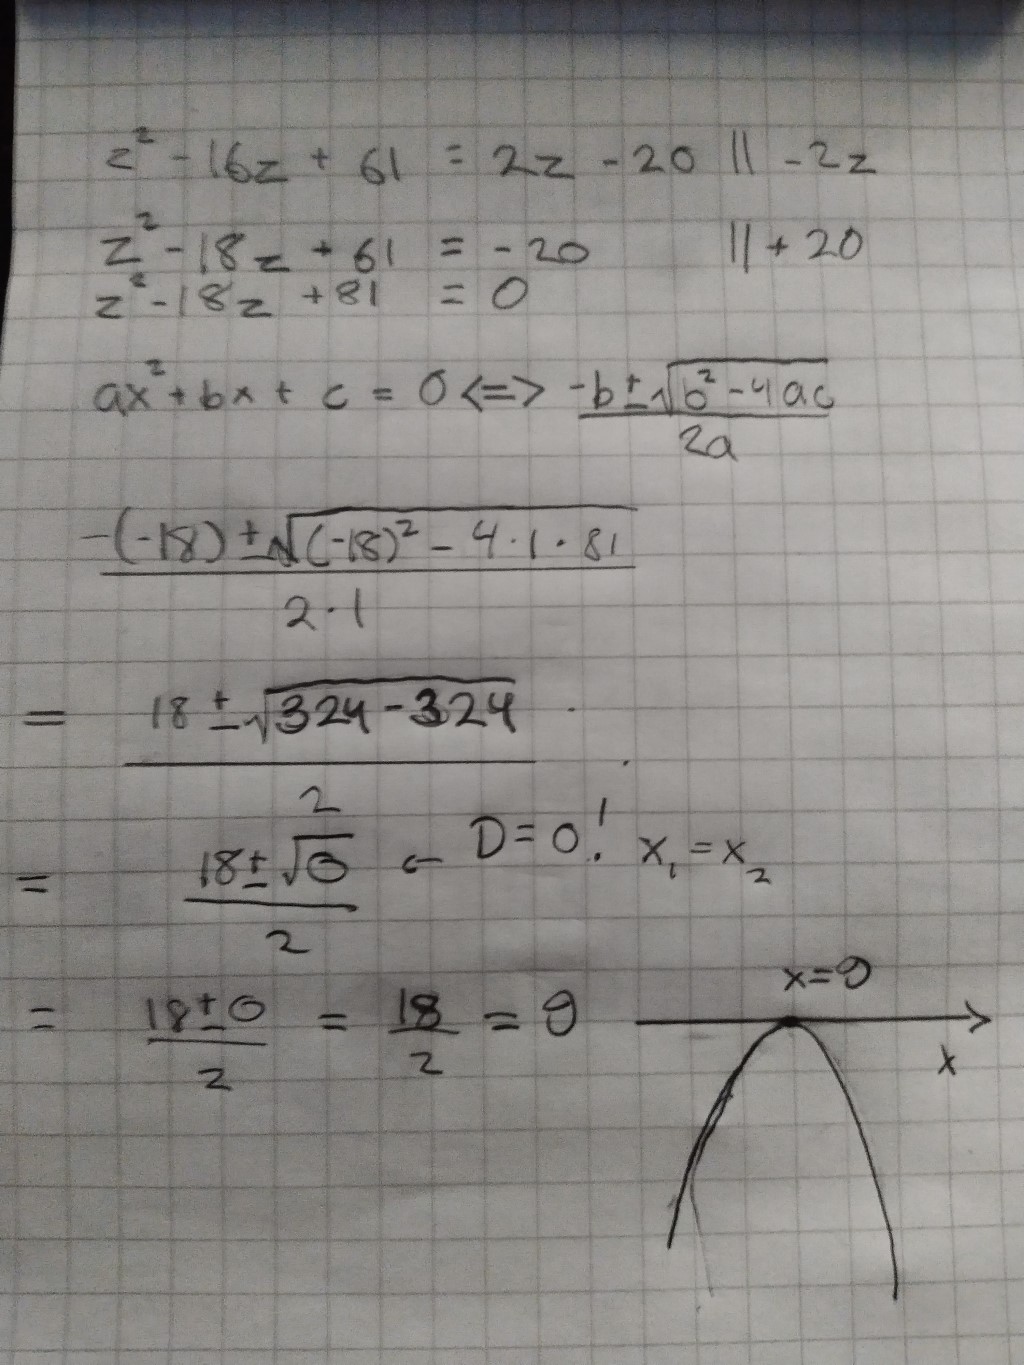 z² - 16z + 61 = 2z - 20 || -2z
z² - 18z + 61 = -20 || + 20
z² - 18z + 81 = 0
ax² + bx + c = 0 <=> (-b ± √(b² - 4ac)) / 2a
(-(-18) ± √((-18)² - 4 · 1 · 81)) / (2 · 1)
= (18 ± √(324 - 324)) / 2
= (18 ± √0) / 2 ← D = 0! x₁ = x₂
= (18 ± 0) / 2 = 18 / 2 = 9
x = 9
x